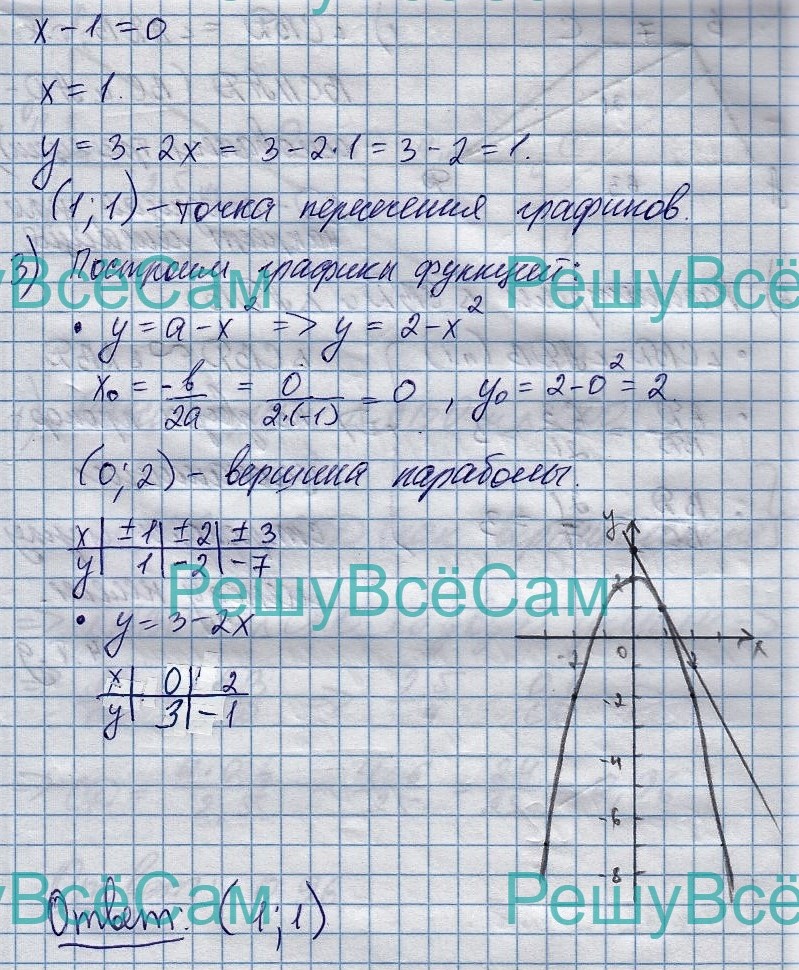 x - 1 = 0
x = 1.
y = 3 - 2x = 3 - 2·1 = 3 - 2 = 1.
(1; 1) - точка пересечения графиков.
3) Построим графики функций:
РешуВсёСам РешуВсё
• y = a - x² => y = 2 - x²
x₀ = -b/2a = 0/2·(-1) = 0, y₀ = 2 - 0² = 2.
(0; 2) - вершина параболы.
x | ±1 | ±2 | ±3
y | 1 | -2 | -7
РешуВсёСам
• y = 3 - 2x
x | 0 | 2
y | 3 | -1
y
2
-2 0 2 x
-2
-4
-6
-8
РешуВсёСам РешуВсё
Ответ: (1; 1)